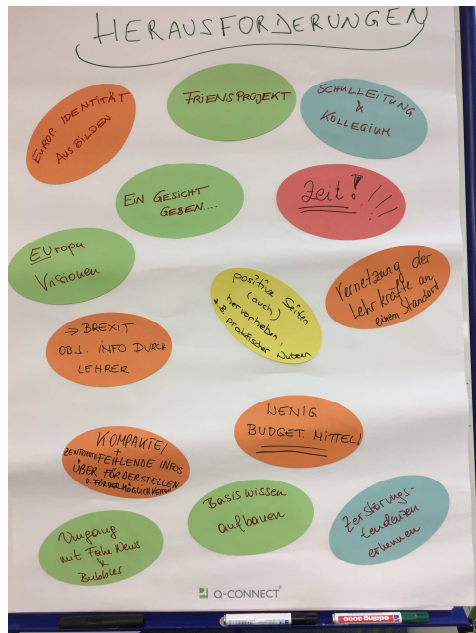 HERAUSFORDERUNGEN
EUROP. IDENTITÄT
AUSBILDEN
FRIENSPROJEKT
SCHULLEITUNG
&
KOLLEGIUM
EIN GESICHT
GEBEN....
Zeit!!!!
EUropa
Visionen
positive Seiten
(auch)
hervorheben,
praktischer Nutzen
Vernetzung der
Lehrkräfte an
einem Standort
→ BREXIT
OBJ. INFO DURCH
LEHRER
WENIG
BUDGET. MITTEL!
KOMPAKTE/
+
ZENTRIERTE FEHLENDE INFOS
ÜBER FÖRDERSTELLEN
FÖRDERMÖGLICHKEITEN
Basiswissen
aufbauen
Zerstörungs-
tendenzen
erkennen
Umgang
mit Fake News
&
Bubbles
Q-CONNECT
edding 3000